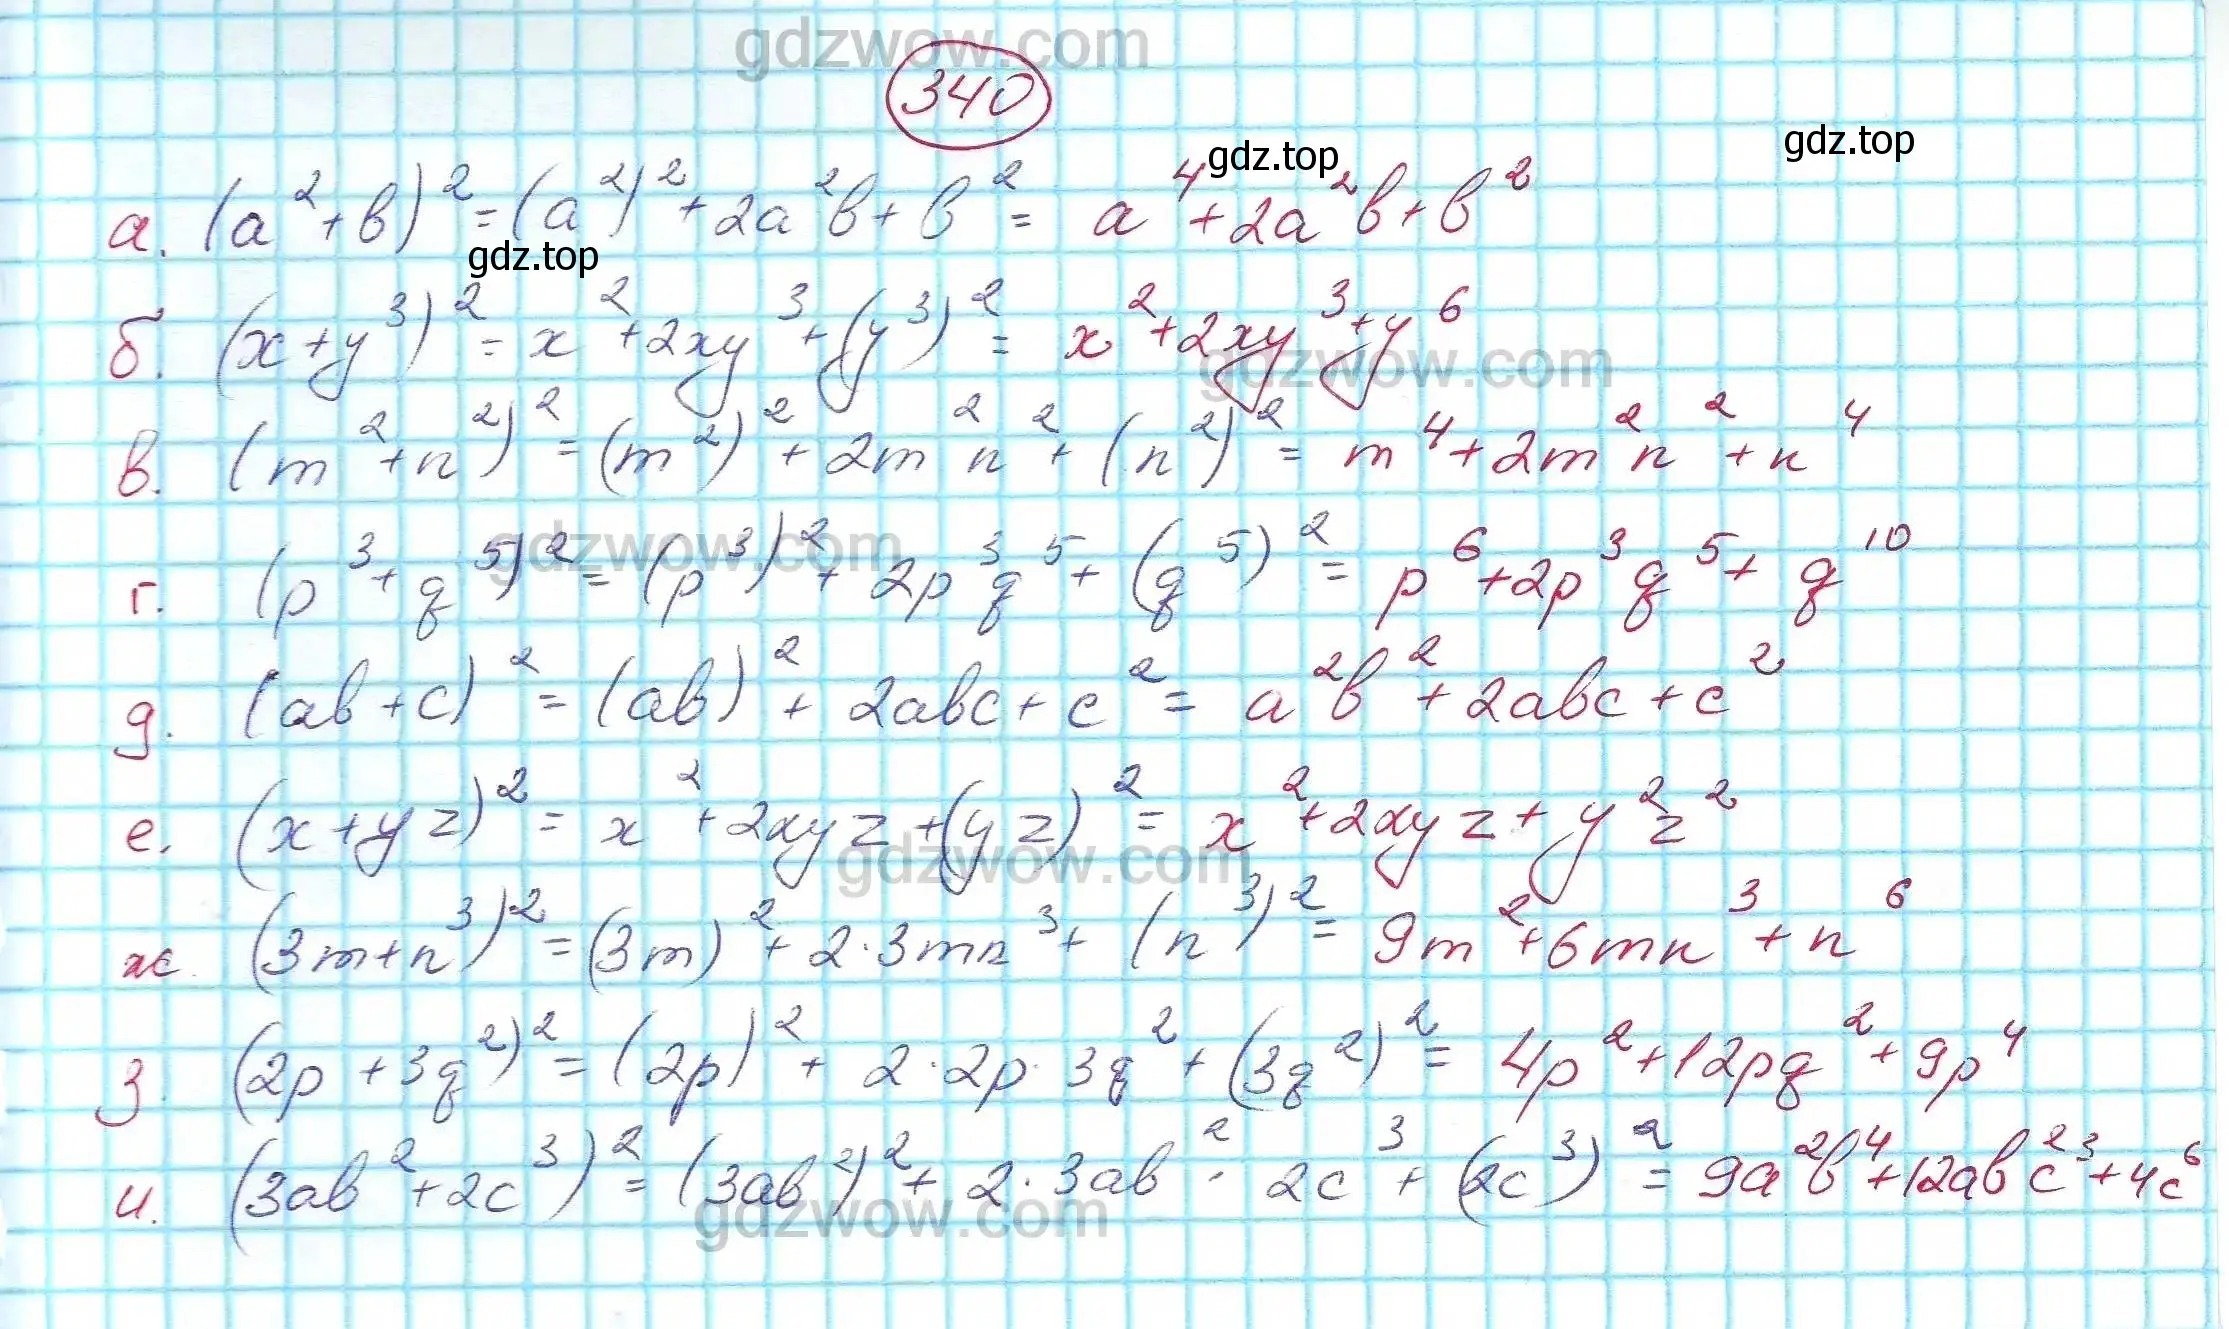 gdzwow.com
340
gdz.top
gdz.top
а. (a²+b)²=(a²)²+2a²b+b²= a⁴+2a²b+b²
gdz.top
б. (x+y³)²=x²+2xy³+(y³)²= x²+2xy³+y⁶
gdzwow.com
в. (m²+n²)²=(m²)²+2m²n²+(n²)²= m⁴+2m²n²+n⁴
gdzwow.com
г. (p³+q⁵)²=(p³)²+2p³q⁵+(q⁵)²= p⁶+2p³q⁵+q¹⁰
д. (ab+c)²=(ab)²+2abc+c²= a²b²+2abc+c²
е. (x+yz)²=x²+2xyz+(yz)²= x²+2xyz+y²z²
gdzwow.com
ж. (3m+n³)²=(3m)²+2·3mn³+(n³)²= 9m²+6mn³+n⁶
з. (2p+3q²)²=(2p)²+2·2p·3q²+(3q²)²= 4p²+12pq²+9p⁴
и. (3ab²+2c³)²=(3ab²)²+2·3ab²·2c³+(2c³)²= 9a²b⁴+12ab²c³+4c⁶
gdzwow.com